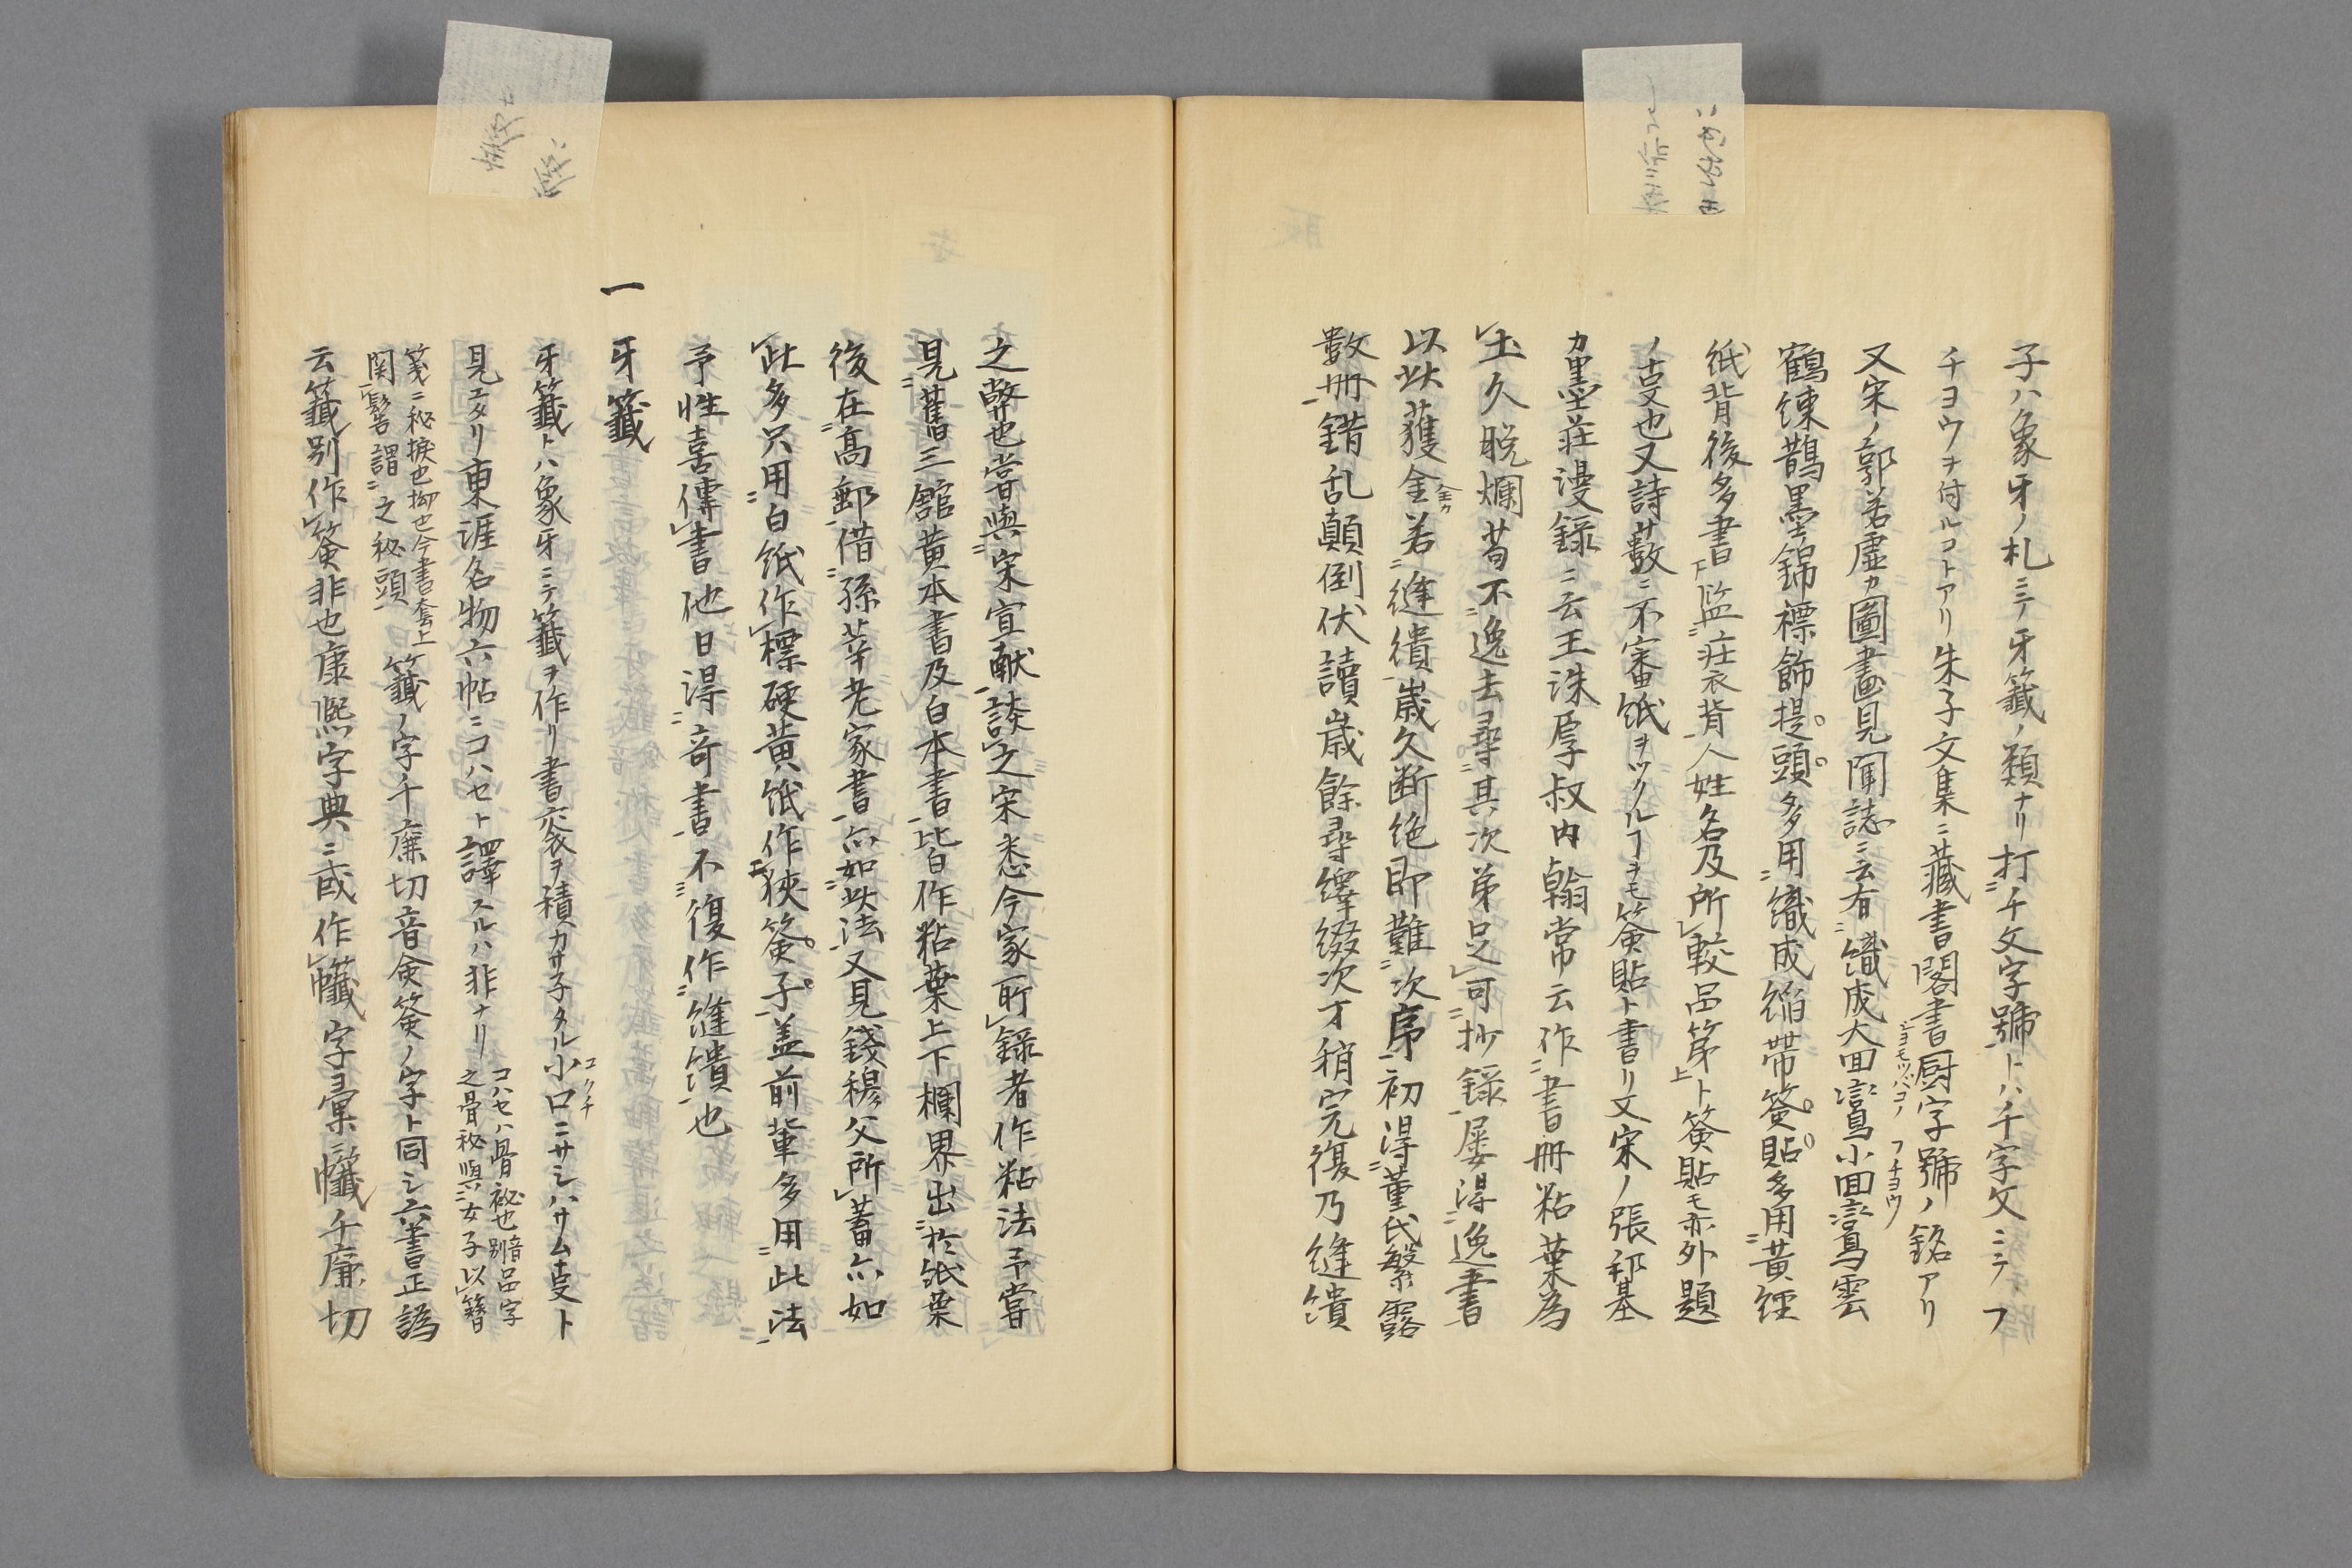 子ハ象牙ノ札ニテ牙籤ノ類ナリ打チ文字號トハ千字文ニテフ
チヨウヲ付ルコトアリ朱子文集ニ藏書閣書厨字號ノ銘アリ
又宋ノ郭若虚カ圖畫見聞誌ニ云有織成大回鸞小回鸞雲
鶴練鵲墨錦褾飾提頭多用織成縚帯簽貼多用黄経
紙背後多書監荘衣背人姓名及所較品第ト簽貼モ亦外題
ノ支也又詩藪ニ不審紙ヲツクルヿヲモ簽貼ト書リ又宋ノ張邦基
カ墨荘漫録ニ云王洙原叔内翰常云作書冊粘葉為
上久脱爛苟不逸去尋其次第足可抄録屡得逸書
以此獲金若縫繢歳久断絶即難次序初得董氏繁露
数冊錯乱顛倒伏讀歳餘尋繹綴次才稍完復乃縫繢
之敝也嘗與宋宣献談之宋悉今家所録者作粘法予嘗
見舊三舘黄本書及白本書皆作粘葉上下欄界出於紙葉
後在高郵借孫莘老家書亦如此法又見錢穆父所蓄亦如
此多只用白紙作標硬黄紙作狹簽子盖前輩多用此法
予性喜傳書他日得奇書不復作縫繢也
一 牙籤
牙籤トハ象牙ニテ籤ヲ作リ書袠ヲ積カサ子タル小口ニサシハサム支ト
見エタリ東涯名物六帖ニコハセト譯スルハ非ナリ コハセハ骨䤡也 之骨䤡與女子以簪
笺ニ秘捩也拗也今書套上 関髻謂之秘頭 籤ノ字千廉切音僉簽ノ字ト同シ六書正譌
云籤別作簽非也康熙字典ニ或作櫼字彙櫼千廉切